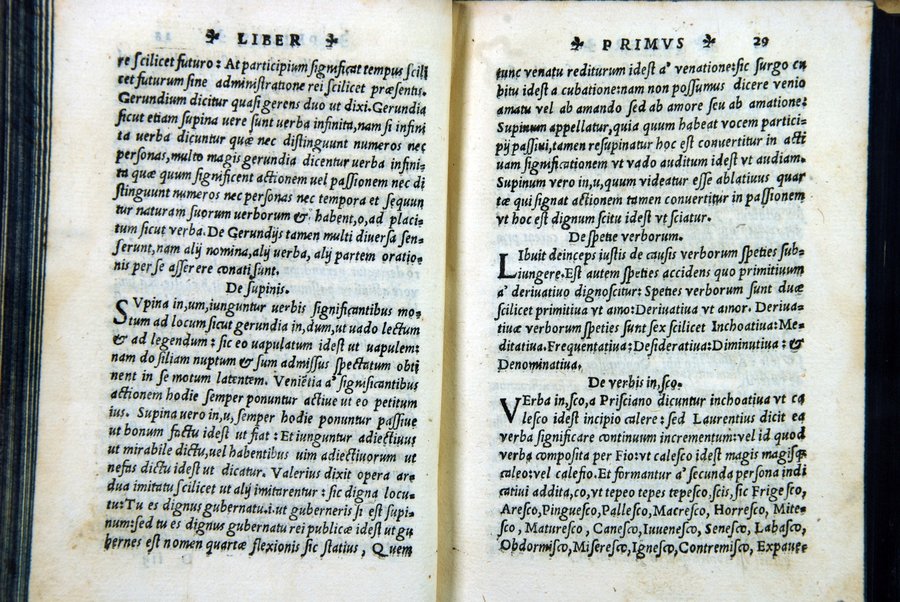 LIBER
re scilicet futuro: At participium significat tempus scili
cet futurum sine administratione rei scilicet præsentis.
Gerundium dicitur quasi gerens duo ut dixi. Gerundia
sicut etiam supina uere sunt uerba infinita, nam si infini
ta uerba dicuntur quæ nec distinguunt numeros nec
personas, multo magis gerundia dicentur uerba infini-
ta quæ quum significent actionem uel passionem nec di
stinguunt numeros nec personas nec tempora et sequun
tur naturam suorum uerborum & habent, o, ad placi-
tum sicut uerba. De Gerundijs tamen multi diuersa sen-
serunt, nam alij nomina, alij uerba, alij partem oratio-
nis per se asserere conati sunt.
De supinis.
SVpina in, um, iunguntur uerbis significantibus mo-
tum ad locum sicut gerundia in, dum, ut uado lectum
& ad legendum: sic eo uapulatum idest ut uapulem:
nam do filiam nuptum & sum admissus spectatum obti
nent in se motum latentem. Veniētia a' significantibus
actionem hodie semper ponuntur actiue ut eo petitum
ius. Supina uero in, u, semper hodie ponuntur passiue
ut bonum factu idest ut fiat: Et iunguntur adiectiuus
ut mirabile dictu, uel habentibus uim adiectiuorum ut
nefas dictu idest ut dicatur. Valerius dixit opera ar-
dua imitatu scilicet ut alij imitarentur: sic digna locu-
tu: Tu es dignus gubernatu .i. ut guberneris si est supi-
num: sed tu es dignus gubernatu rei publicæ idest ut gu
bernes est nomen quartæ flexionis sic statius, Quem
PRIMVS 29
tunc venatu rediturum idest a' venatione: sic surgo cu
bitu idest a cubatione: nam non possumus dicere venio
amatu vel ab amando sed ab amore seu ab amatione:
Supinum appellatur, quia quum habeat vocem partici-
pij passiui, tamen resupinatur hoc est conuertitur in acti
uam significationem vt vado auditum idest vt audiam.
Supinum vero in, u, quum videatur esse ablatiuus quar
tæ qui signat actionem tamen conuertitur in passionem
vt hoc est dignum scitu idest vt sciatur.
De spetie verborum.
LIbuit deinceps iustis de causis verborum speties sub-
iungere. Est autem speties accidens quo primitiuum
a' deriuatiuo dignoscitur: Speties verborum sunt duæ
scilicet primitiua vt amo: Deriuatiua vt amor. Deriua-
tiuæ verborum speties sunt sex scilicet Inchoatiua: Me-
ditatiua. Frequentatiua: Desideratiua: Diminutiua: &
Denominatiua.
De verbis in, sco.
VErba in, sco, a Prisciano dicuntur inchoatiua vt ca
lesco idest incipio calere: sed Laurentius dicit ea
verba significare continuum incrementum: vel id quod
verba composita per Fio: vt calesco idest magis magisq;
caleo: vel calefio. Et formantur a' secunda persona indi
catiui addita, co, vt tepeo tepes tepesco. scis, sic Frigesco,
Aresco, Pinguesco, Pallesco, Macresco, Horresco, Mite-
sco, Maturesco, Canesco, Iuuenesco, Senesco, Labasco,
Obdormisco, Miseresco, Ignesco, Contremisco, Expaue-